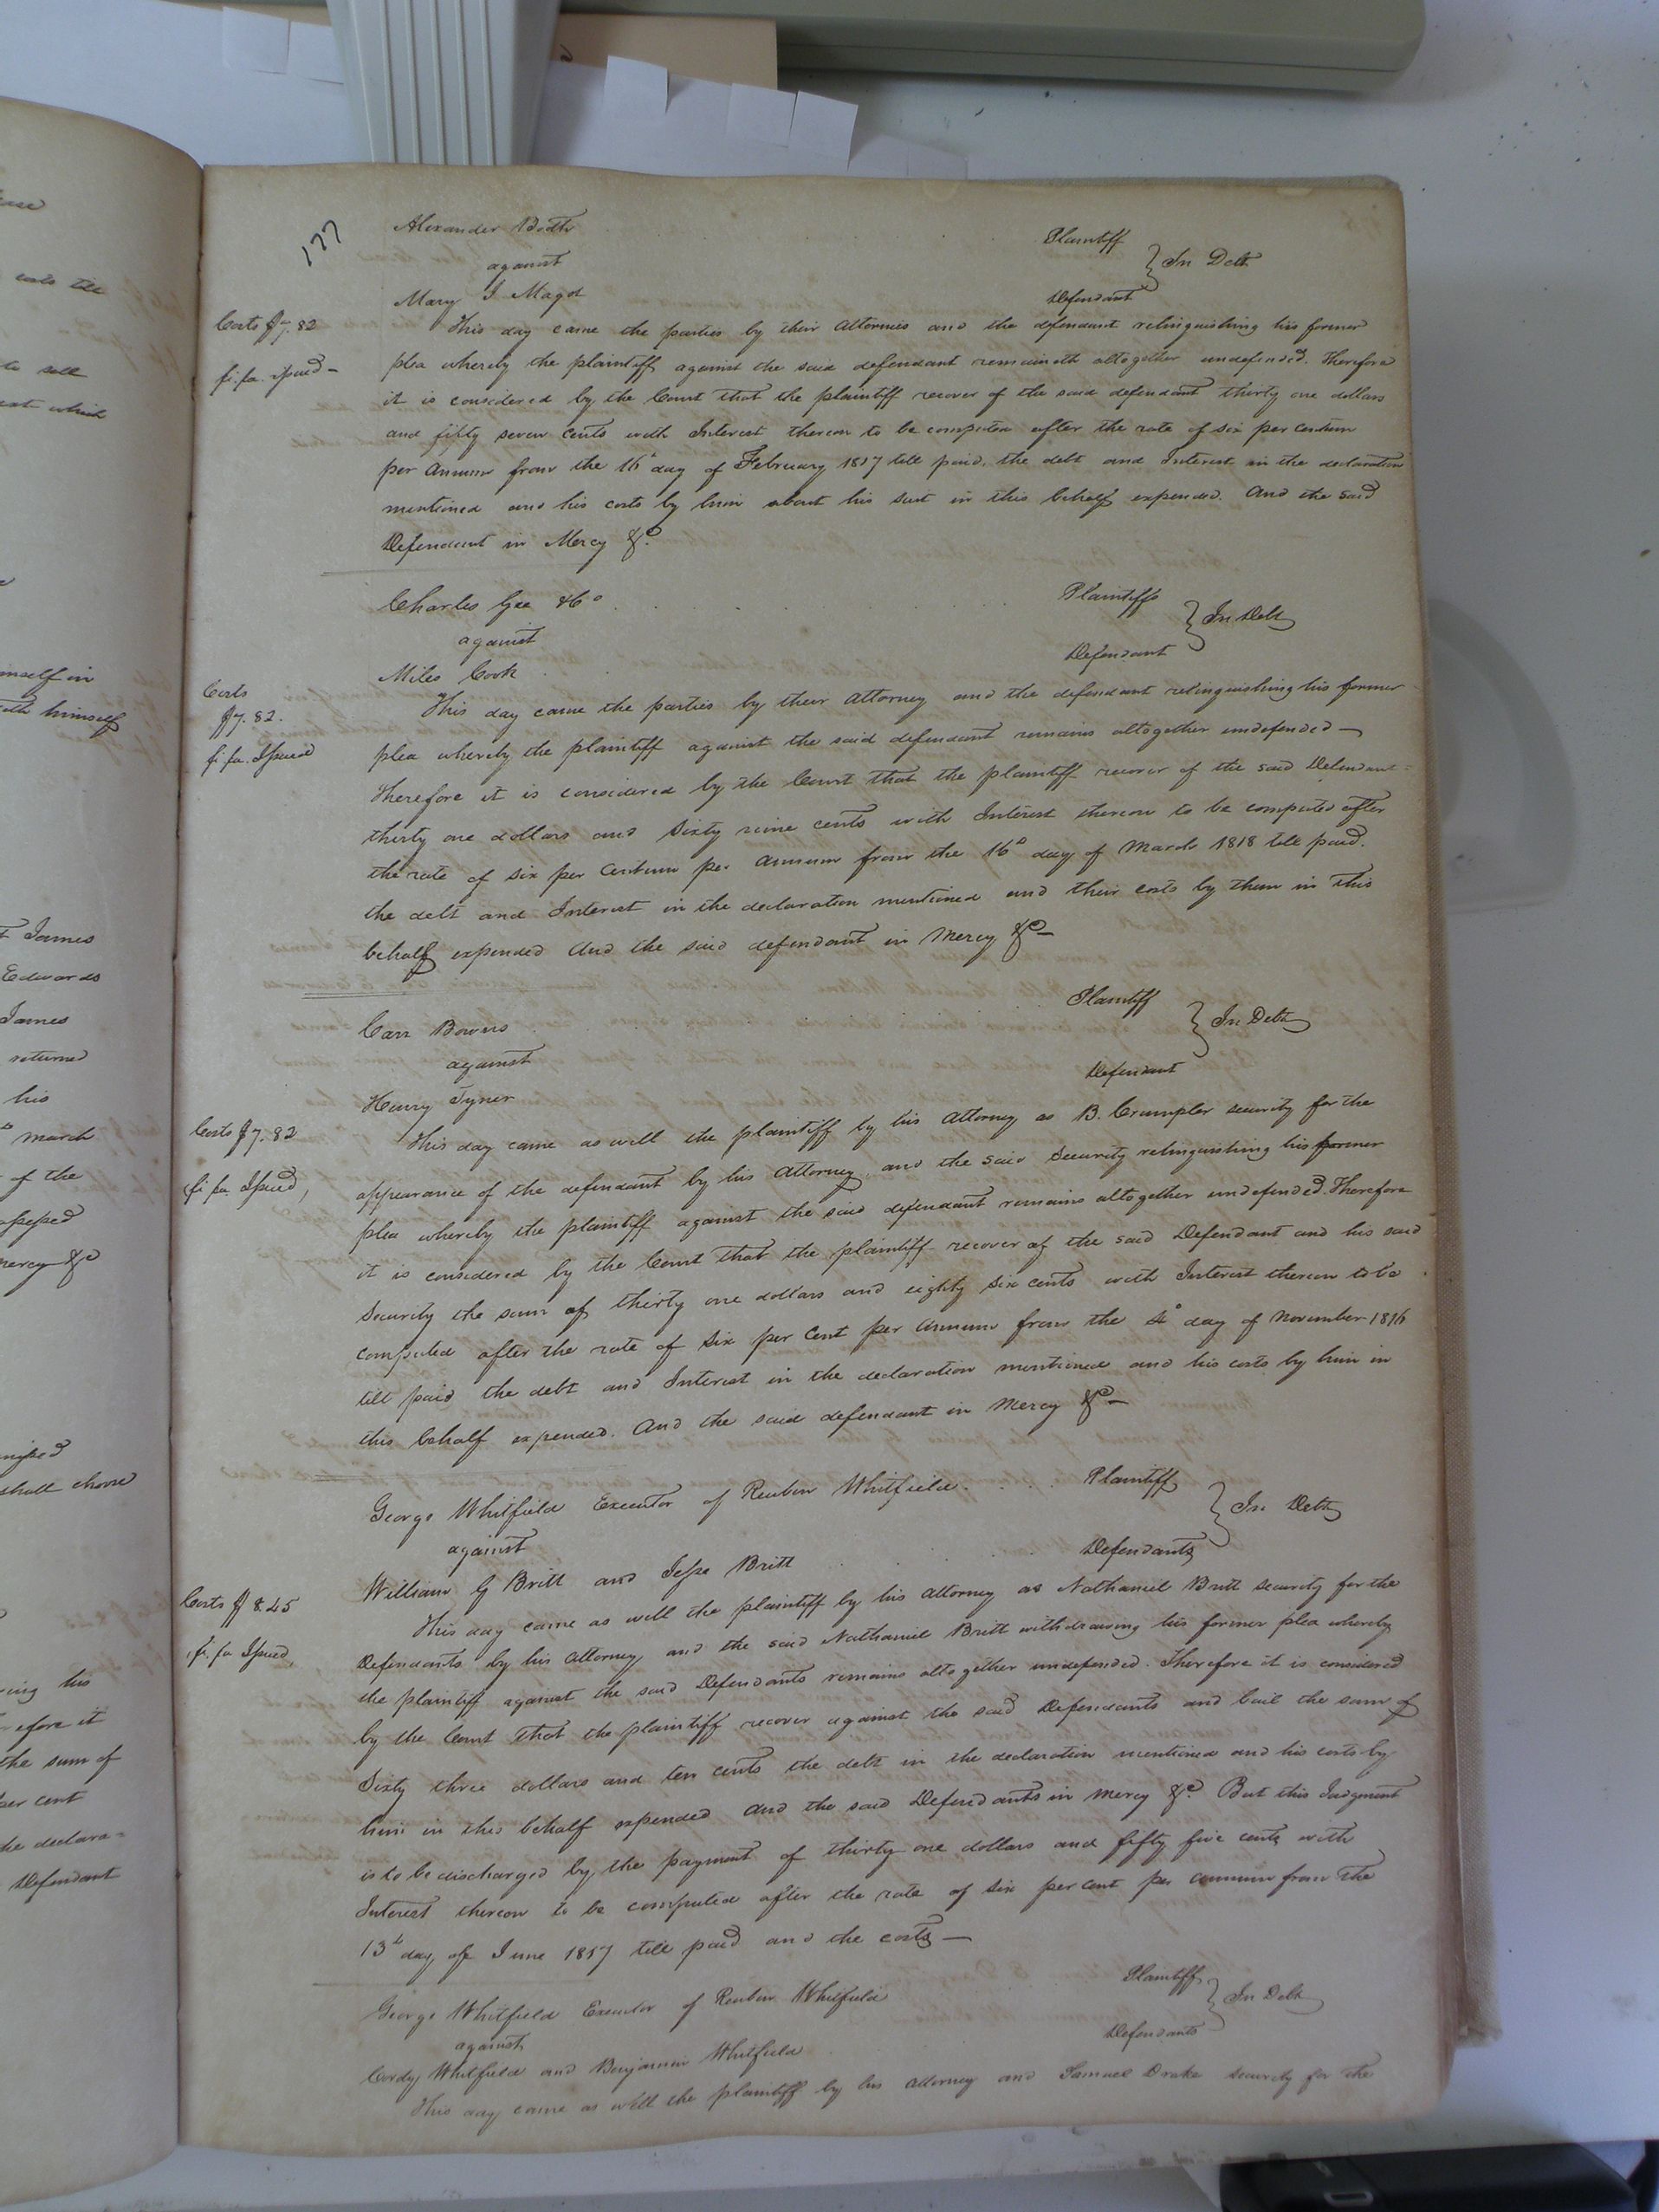 ease
costs the
to sell
est which
imself in
oth himself
t James
Edwards
James
returned
his
march
of the
assessed
mercy &c
shall choose
ing his
efore it
the sum of
per cent
the declara=
Defendant
177
Alexander Booth Plaintiff
against } In Debt
Mary I Magot Defendant
Costs $7.82
fi. fa. issued -
This day came the parties by their attornies and the defendant relinquishing his former
plea whereby the plaintiff against the said defendant remaineth altogether undefended. Therefore
it is considered by the Court that the plaintiff recover of the said defendant thirty one dollars
and fifty seven cents with Interest thereon to be computed after the rate of six per centum
per annum from the 16th day of February 1817 till paid, the debt and Interest in the declaration
mentioned and his costs by him about his suit in this behalf expended. And the said
Defendant in Mercy &c.
Charles Gee &Co Plaintiffs
against } In Debt
Miles Cook Defendant
Costs
$7.82.
fi fa. Issued
This day came the parties by their attorney and the defendant relinquishing his former
plea whereby the plaintiff against the said defendant remains altogether undefended —
Therefore it is considered by the Court that the plaintiff recover of the said Defendant
thirty one dollars and sixty nine cents with Interest thereon to be computed after
the rate of six per Centum per annum from the 16th day of March 1818 till paid.
the debt and Interest in the declaration mentioned and their costs by them in this
behalf expended And the said defendant in Mercy &c —
Carr Bowers Plaintiff
against } In Debt
Henry Tyner Defendant
Costs $7.82
fi fa Issued,
This day came as well the plaintiff by his attorney as B. Crumpler security for the
appearance of the defendant by his attorney, and the said Security relinquishing his former
plea whereby the plaintiff against the said defendant remains altogether undefended. Therefore
it is considered by the Court that the plaintiff recover of the said Defendant and his said
Security the sum of thirty one dollars and eighty six cents with Interest thereon to be
computed after the rate of six per Cent per annum from the 4th day of November 1816
till paid the debt and Interest in the declaration mentioned and his costs by him in
this behalf expended. And the said defendant in Mercy &c —
George Whitfield Executor of Reuben Whitfield Plaintiff
against } In Debt
William G Britt and Jesse Britt Defendants
Costs $8.45
fi. fa Issued,
This day came as well the plaintiff by his attorney as Nathaniel Britt security for the
Defendants by his attorney, and the said Nathaniel Britt withdrawing his former plea whereby
the plaintiff against the said Defendants remains altogether undefended. Therefore it is considered
by the Court that the plaintiff recover against the said Defendants and bail the sum of
Sixty three dollars and ten cents the debt in the declaration mentioned and his costs by
him in this behalf expended And the said Defendants in mercy &c. But this Judgment
is to be discharged by the payment of thirty one dollars and fifty five cents with
Interest thereon to be computed after the rate of six per cent per annum from the
13th day of June 1817 till paid and the costs —
George Whitfield Executor of Reuben Whitfield Plaintiff
against } In Debt
Cordy Whitfield and Benjamin Whitfield Defendants
This day came as well the plaintiff by his attorney and Samuel Drake security for the